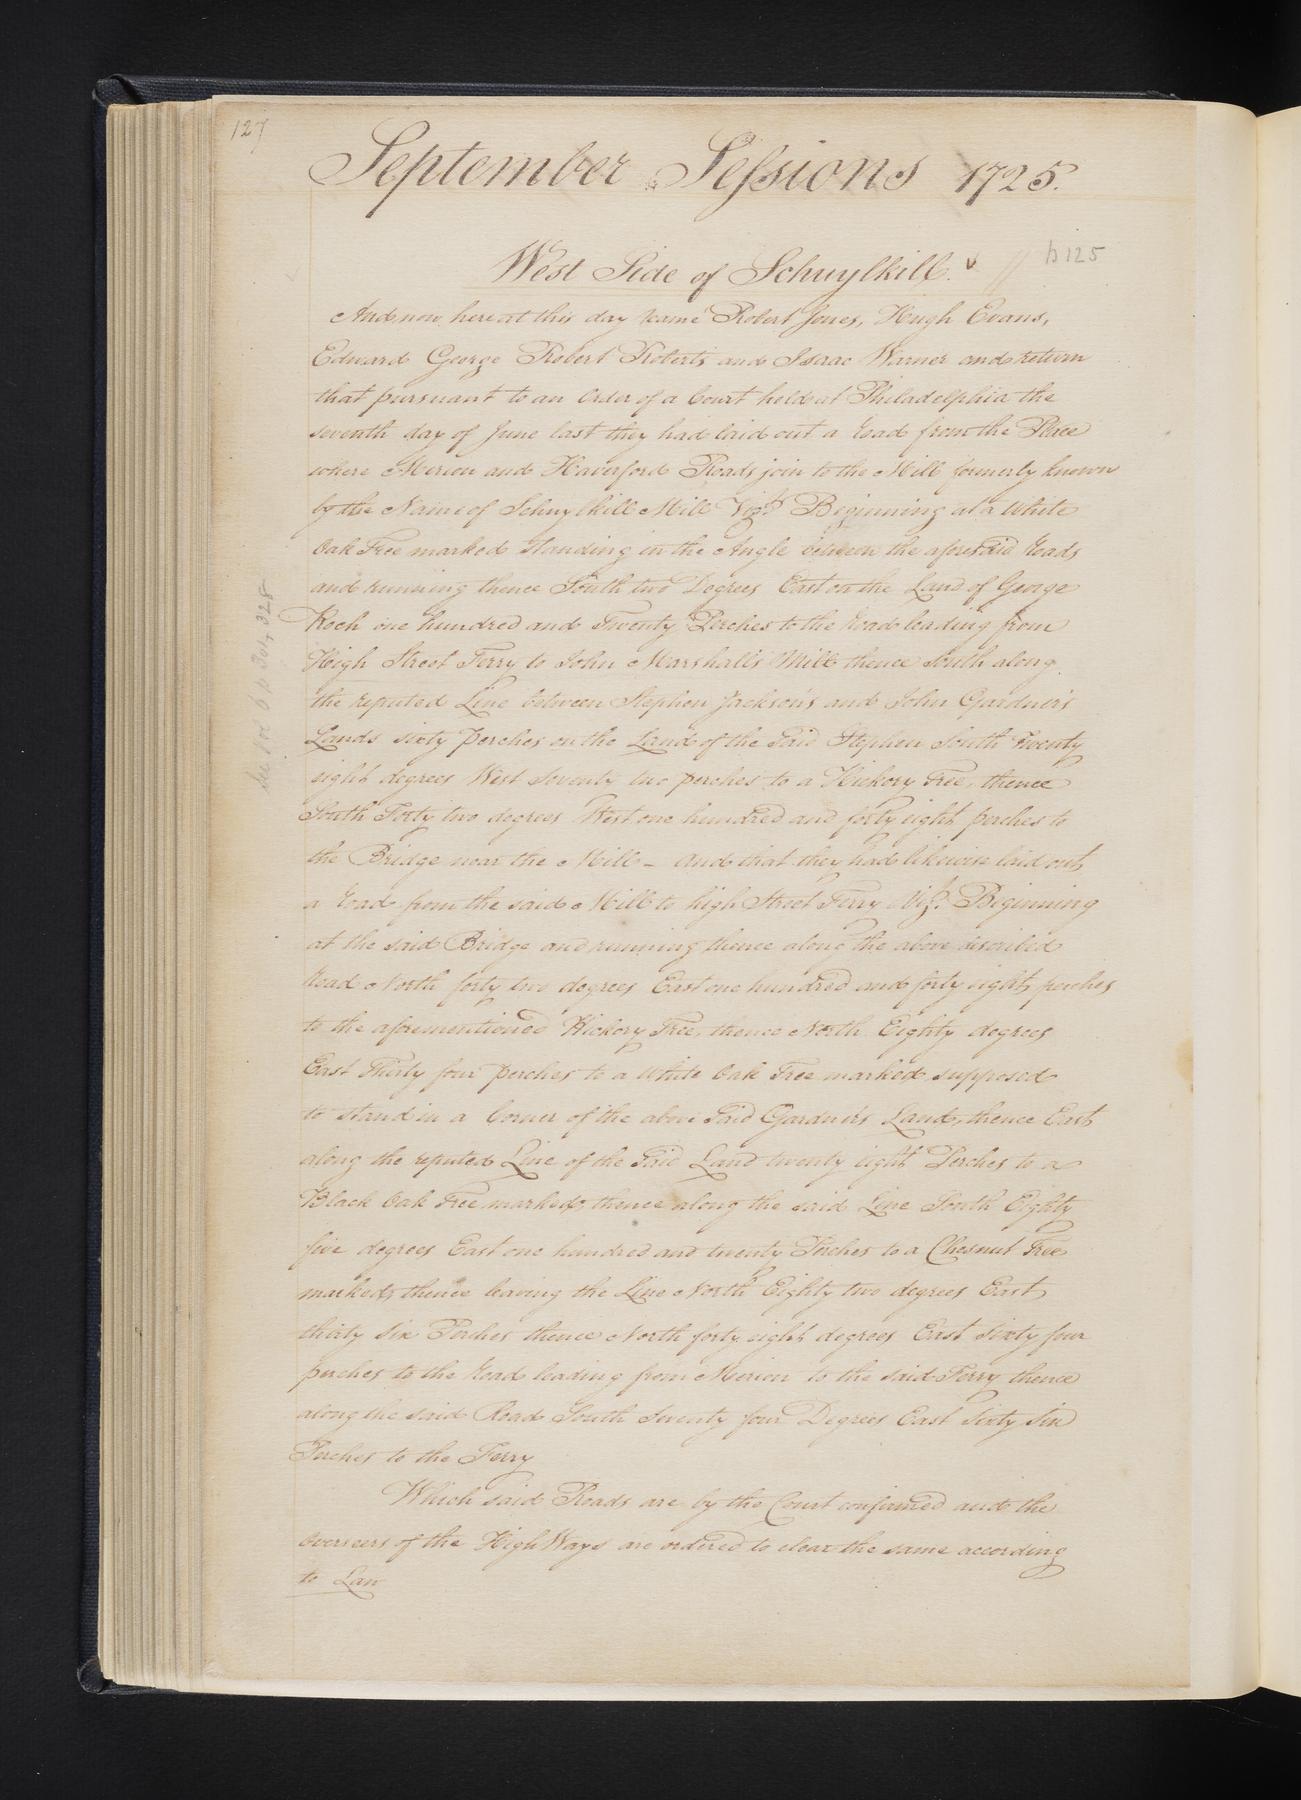 127
September Sessions 1725.
West Side of Schuylkill. p 125
And now here at this day came Robert Jones, Hugh Evans,
Edward George Robert Roberts and Isaac Warner and return
that pursuant to an Order of a Court held at Philadelphia the
seventh day of June last they had laid out a Road from the Place
where Merion and Haverford Roads join to the Mill formerly known
by the Name of Schuylkill Mill Vizt. Beginning at a White
Oak Tree marked standing in the Angle between the aforesaid Roads
and running thence South two Degrees East on the Land of George
Roch one hundred and Twenty Perches to the Road leading from
High Street Ferry to John Marshall's Mill thence South along
the reputed Line between Stephen Jackson's and John Gardner's
Lands sixty perches on the Land of the said Stephen South Twenty
eight degrees West Seventy two perches to a Hickory Tree, thence
South Forty two degrees West one hundred and forty eight perches to
the Bridge near the Mill – And that they had likewise laid out
a Road from the said Mill to high Street Ferry Vizt. Beginning
at the said Bridge and running thence along the above discribed
Road North forty two degrees East one hundred and forty eight perches
to the aforementioned Hickory Tree, thence North Eighty degrees
East Thirty four perches to a White Oak Tree marked supposed
to stand in a Corner of the above said Gardner's Land, thence East
along the reputed Line of the said Land twenty eight Perches to a
Black Oak Tree marked, thence along the said Line South Eighty
five degrees East one hundred and twenty Perches to a Chesnut Tree
marked, thence leaving the Line North Eighty two degrees East
thirty six Perches thence North forty eight degrees East Sixty four
perches to the Road leading from Merion to the said Ferry thence
along the said Road South Seventy four Degrees East Sixty Six
Perches to the Ferry
Which said Roads are by the Court confirmed and the
Overseers of the High Ways are ordered to clear the same according
to Law
see vol 6 p 304, 328